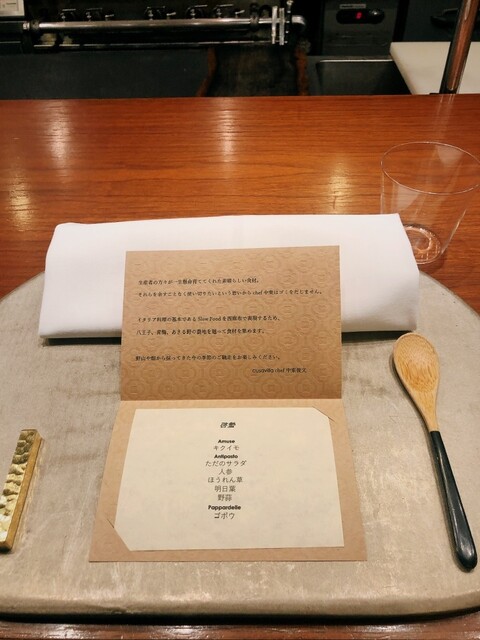 生産者の方々が一生懸命育ててくれた素晴らしい食材。
それらを余すことなく使い切りたいという想いからchef中東はゴミをだしません。
イタリア料理の基本であるSlow Foodを西東京で表現するため、
八王子、青梅、あきる野の農地を巡って食材を集めます。
野山や畑から採ってきた今の季節のご馳走をお楽しみください。
chef 中東俊文
啓蟄
Amuse
キクイモ
Antipasto
ただのサラダ
人参
ほうれん草
明日葉
野蒜
Pappardelle
ゴボウ